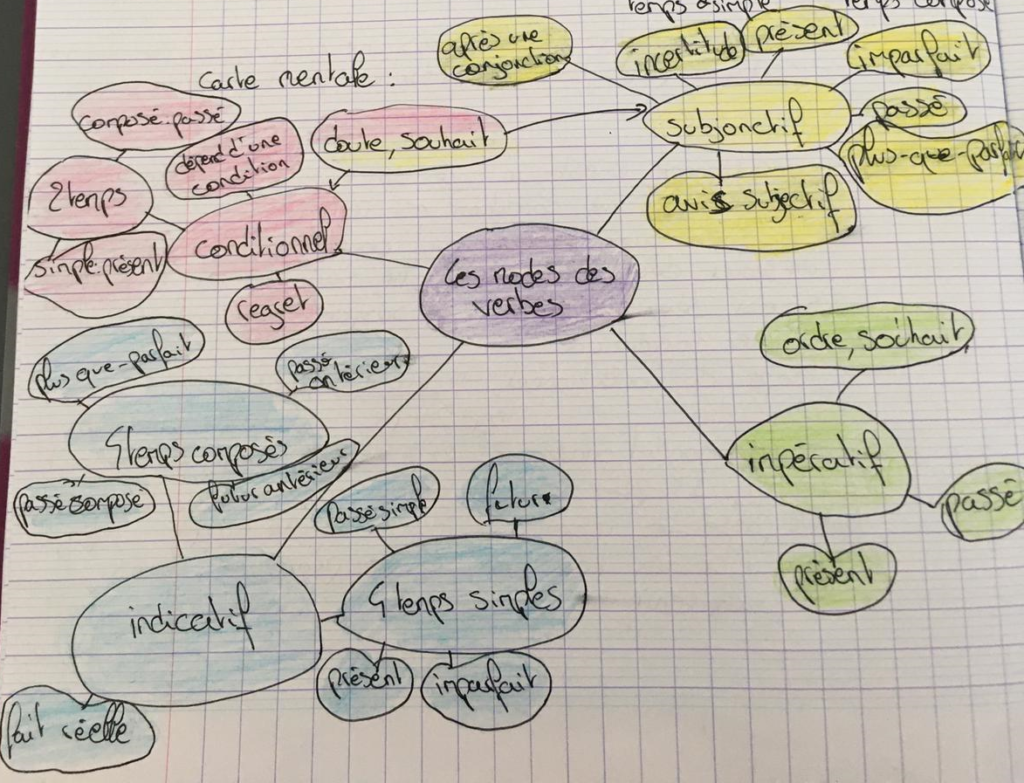 temps simple temps composé
après une
conjonction
incertitude
présent
imparfait
Carte mentale :
composé: passé
dépend d'une
condition
doute, souhait
subjonctif
passé
plus-que-parfait
2 temps
avis subjectif
conditionnel
simple: présent
Les modes des
verbes
regret
ordre, souhait
plus que-parfait
passé
antérieur
4 temps composés
impératif
futur antérieur
passé composé
passé simple
futur
passé
présent
indicatif
4 temps simples
présent
imparfait
fait réelle